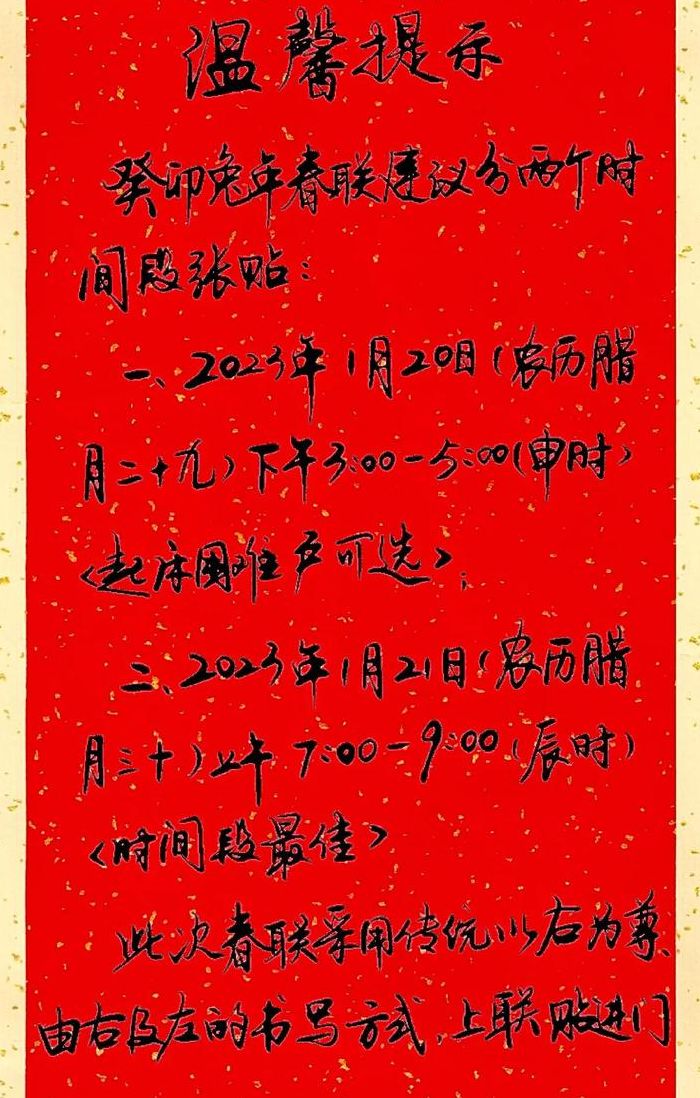 温馨提示
癸卯兔年春联建议分两个时
间段张贴：
一、2023年1月20日（农历腊
月二十九）下午3:00-5:00（申时）
<起床困难户可选>；
二、2023年1月21日（农历腊
月三十）上午7:00-9:00（辰时）
<时间段最佳>
此次春联采用传统以右为尊、
由右及左的书写方式，上联贴进门